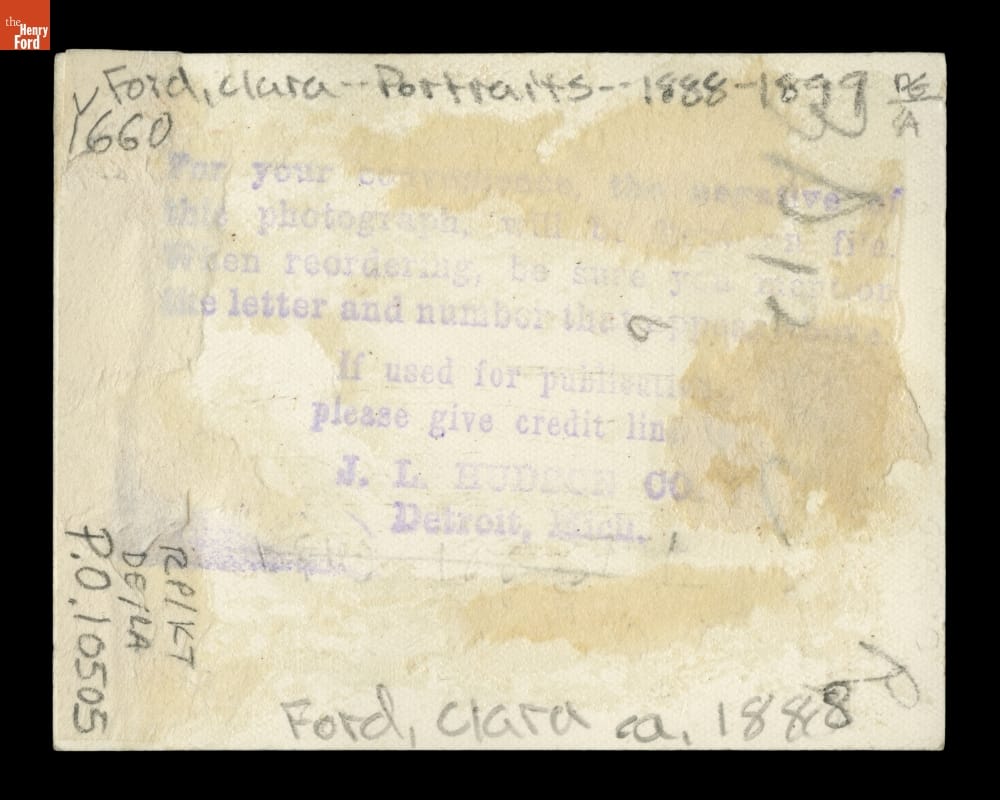 the
Henry
Ford
Ford, Clara--Portraits--1888-1899
1660
For your convenience, the negative of
this photograph, will be kept on file.
When reordering, be sure you mention
the letter and number that appear above.
If used for publication,
please give credit line
J. L. HUDSON CO.
Detroit, Mich.
P.O.10505
Ford, Clara ca. 1888